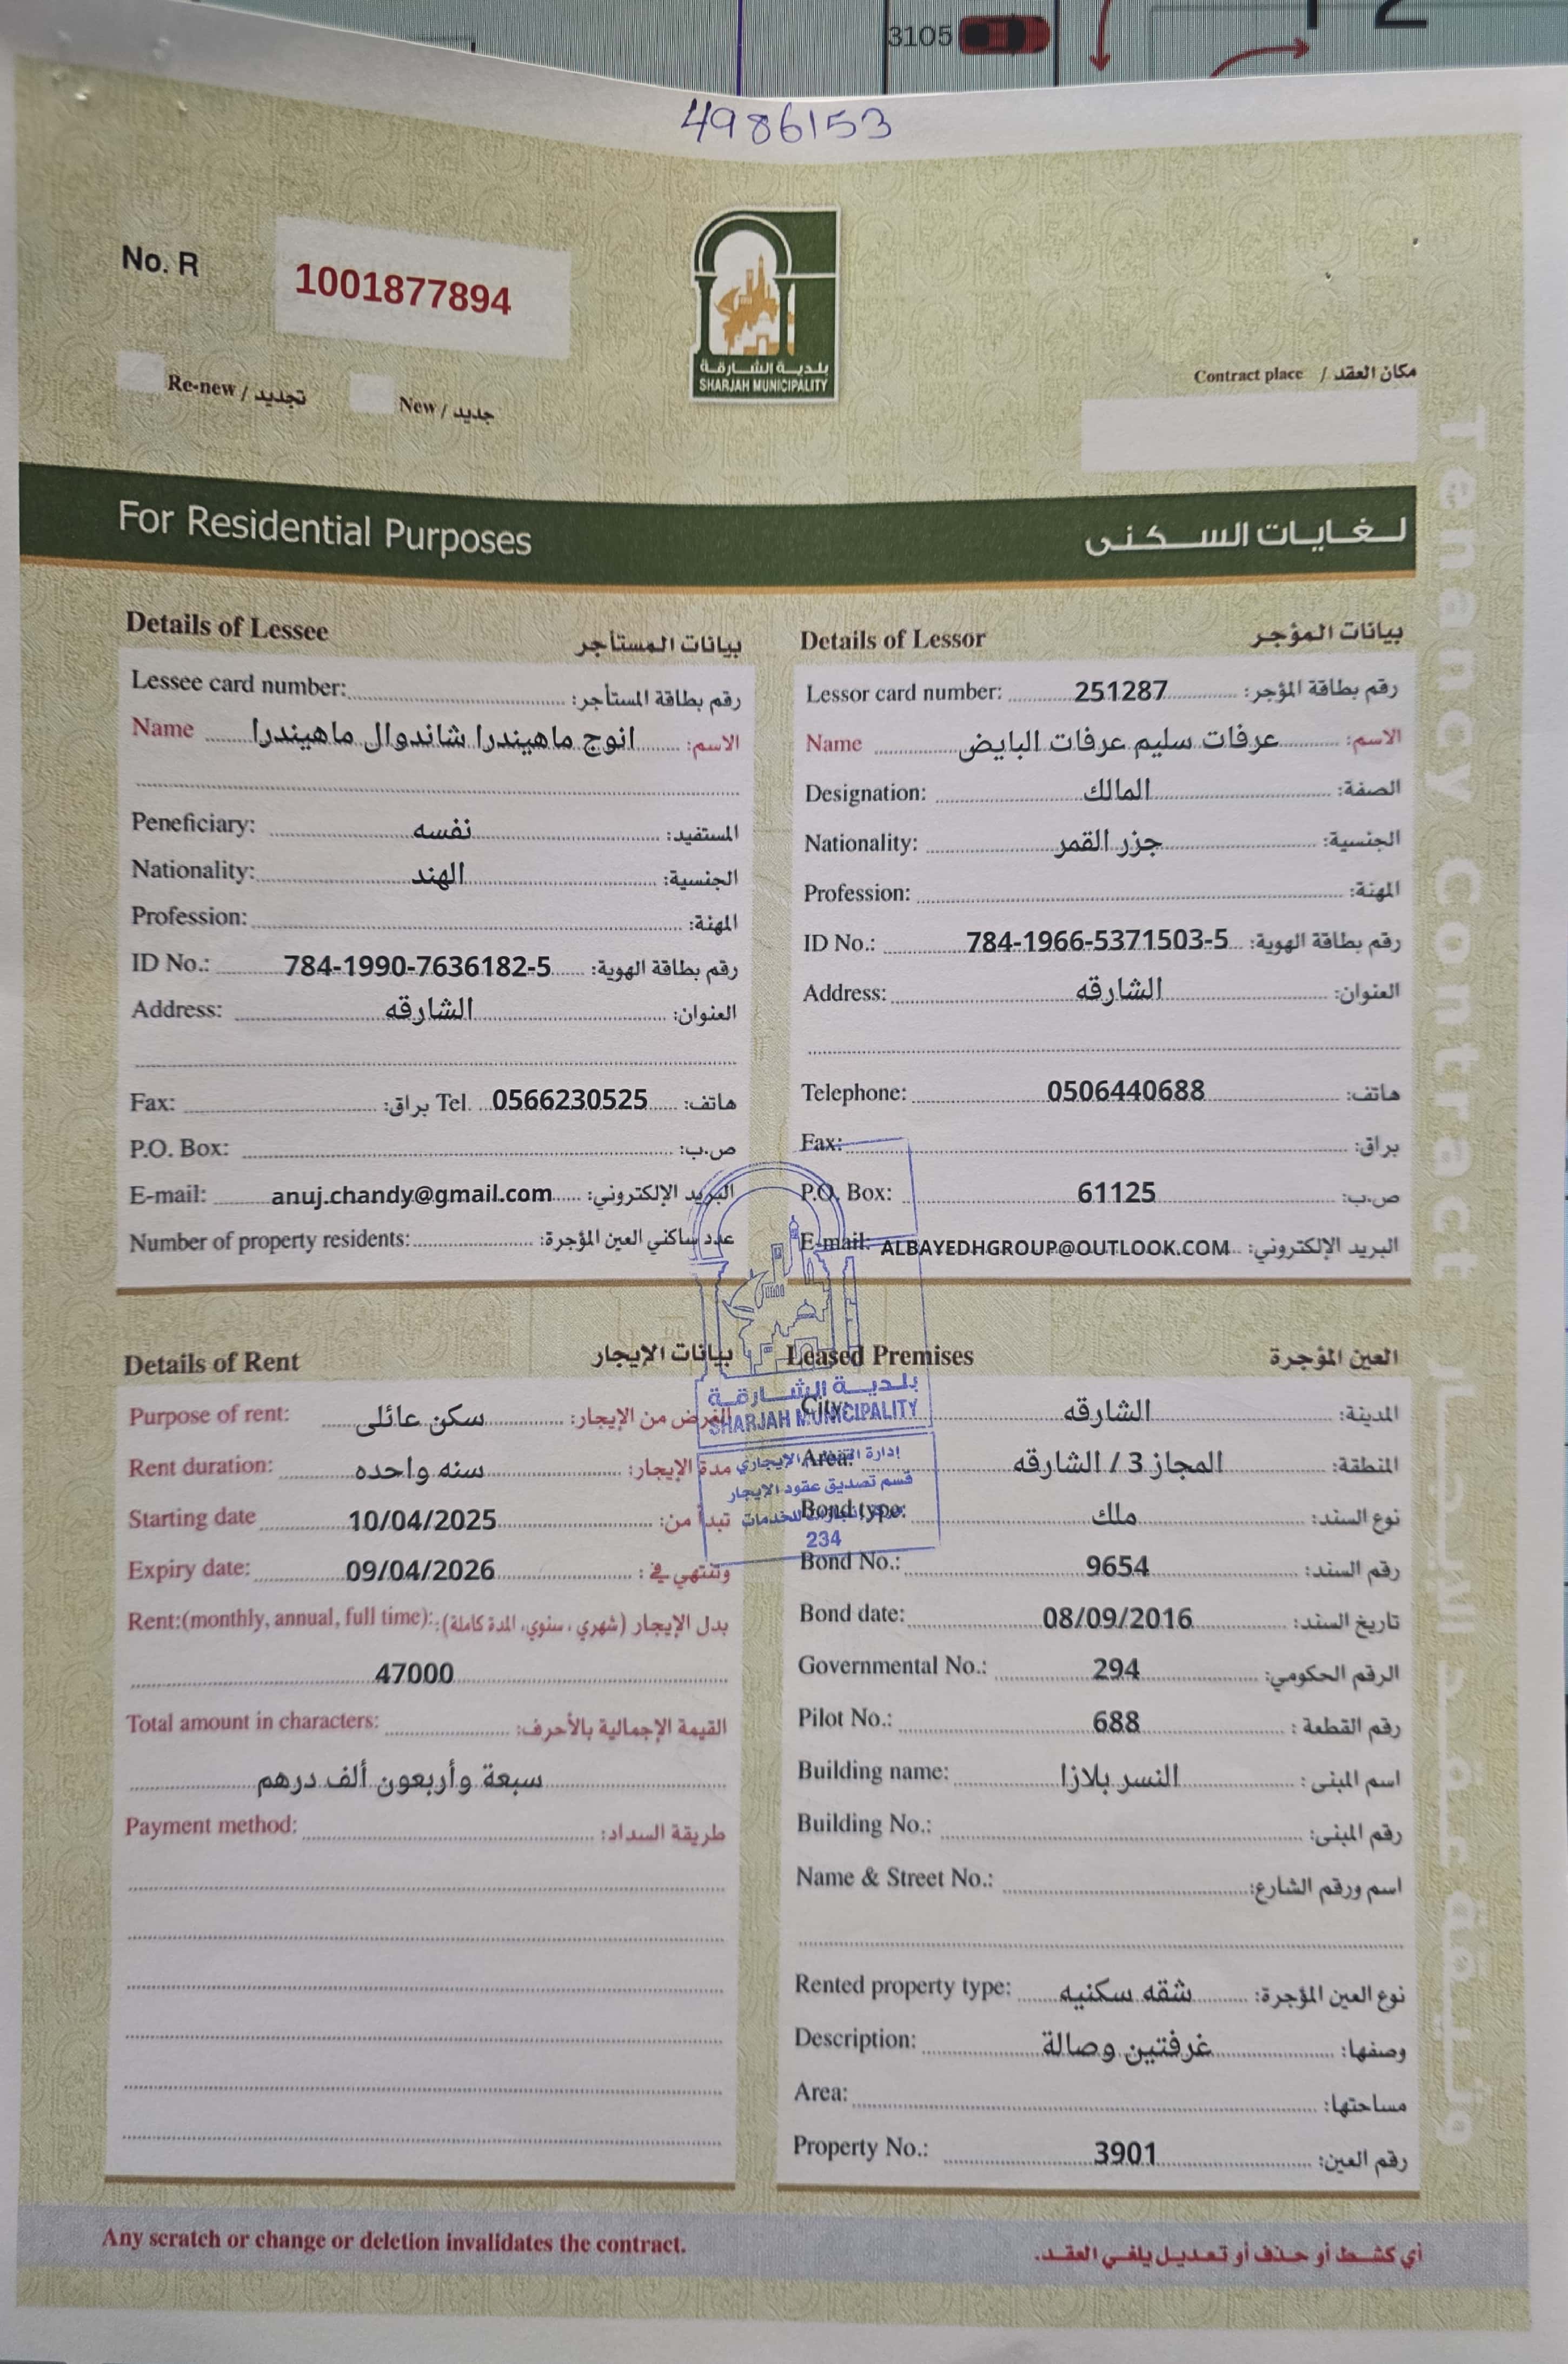 3105
12
4986153
No. R
1001877894
بلدية الشارقة
SHARJAH MUNICIPALITY
Re-new / تجديد
New / جديد
Contract place / مكان العقد
For Residential Purposes
لغايات السكنى
Tenancy Contract
Details of Lessee بيانات المستأجر
Lessee card number: رقم بطاقة المستأجر:
Name انوج ماهيندرا شاندوال ماهيندرا الاسم:
Peneficiary: نفسه المستفيد:
Nationality: الهند الجنسية:
Profession: المهنة:
ID No.: 784-1990-7636182-5 رقم بطاقة الهوية:
Address: الشارقه العنوان:
Fax: براق: Tel. 0566230525 هاتف:
P.O. Box: ص.ب:
E-mail: anuj.chandy@gmail.com البريد الإلكتروني:
Number of property residents: عدد ساكني العين المؤجرة:
Details of Lessor بيانات المؤجر
Lessor card number: 251287 رقم بطاقة المؤجر:
Name عرفات سليم عرفات البايض الاسم:
Designation: المالك الصفة:
Nationality: جزر القمر الجنسية:
Profession: المهنة:
ID No.: 784-1966-5371503-5 رقم بطاقة الهوية:
Address: الشارقه العنوان:
Telephone: 0506440688 هاتف:
Fax: براق:
P.O. Box: 61125 ص.ب:
E-mail: ALBAYEDHGROUP@OUTLOOK.COM البريد الإلكتروني:
Details of Rent بيانات الإيجار
Purpose of rent: سكن عائلى الغرض من الإيجار:
Rent duration: سنه واحده مدة الإيجار:
Starting date 10/04/2025 تبدأ من:
Expiry date: 09/04/2026 وتنتهي في :
Rent:(monthly, annual, full time): بدل الإيجار (شهري ، سنوي، المدة كاملة):
47000
Total amount in characters: القيمة الإجمالية بالأحرف:
سبعة وأربعون ألف درهم
Payment method: طريقة السداد:
بلدية الشارقة
SHARJAH MUNICIPALITY
إدارة الإيجاري
قسم تصديق عقود الإيجار
للخدمات
234
Leased Premises العين المؤجرة
City: الشارقه المدينة:
Area: المجاز 3 / الشارقه المنطقة:
Bond type: ملك نوع السند:
Bond No.: 9654 رقم السند:
Bond date: 08/09/2016 تاريخ السند:
Governmental No.: 294 الرقم الحكومي:
Pilot No.: 688 رقم القطعة :
Building name: النسر بلازا اسم المبنى :
Building No.: رقم المبنى:
Name & Street No.: اسم ورقم الشارع:
Rented property type: شقه سكنيه نوع العين المؤجرة:
Description: غرفتين وصالة وصفها:
Area: مساحتها:
Property No.: 3901 رقم العين:
Any scratch or change or deletion invalidates the contract.
أي كشط أو حذف أو تعديل يلغي العقد.